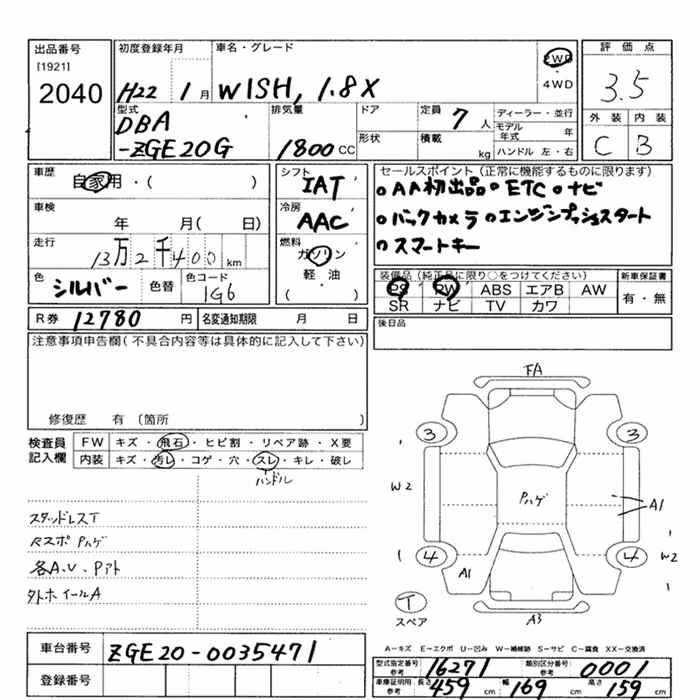 出品番号
[1921]
2040
初度登録年月
H22 1月
車名・グレード
WISH, 1.8X
2WD
4WD
評価点
3.5
外装 内装
C B
型式
DBA
-ZGE20G
排気量
1800 CC
ドア
形状
定員 7人
積載 kg
ディーラー・並行
モデル年式 年
ハンドル 左・右
車歴
自家用・( )
車検
年 月( 日)
走行
13万2千400 km
色 シルバー 色替
色コード
1G6
シフト
IAT
冷房
AAC
燃料
ガソリン
軽・油
( )
セールスポイント(正常に機能するものに限ります)
・AA初出品 ・ETC ・ナビ
・バックカメラ ・エンジンプッシュスタート
・スマートキー
装備品(純正品に限り○をつけてください)
PS PW ABS エアB AW
SR ナビ TV カワ
新車保証書
有・無
R券 12780 円 名変通知期限 月 日
後日品
注意事項申告欄(不具合内容等は具体的に記入して下さい)
修復歴 有(箇所 )
検査員
記入欄
FW キズ・飛石・ヒビ割・リペア跡・X要
内装 キズ・汚レ・コゲ・穴・スレ・キレ・破レ
ハンドル
スタッドレスT
Rスポ Pハゲ
各A.U.Pアト
外ホイールA
FA
3 3
W2
Pハゲ
A1
4 4
W2
A1
T
スペア
A3
車台番号 ZGE20-0035471
登録番号
A-キズ E-エクボ U-凹み W-補修跡 S-サビ C-腐食 XX-交換済
型式指定番号 参考 16271 類別区分番号 参考 0001
車庫証明用 参考 長さ 459 cm 幅 169 cm 高さ 159 cm